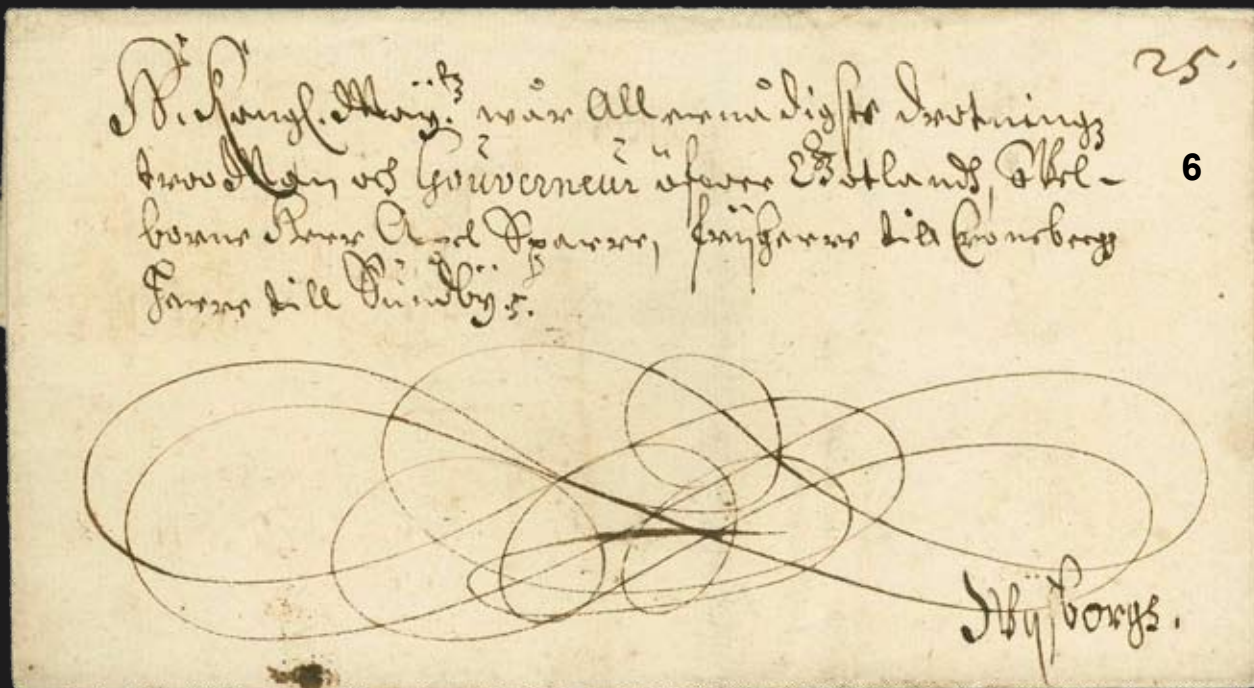 25.
H. Kongl. May:tz wår Allernådigste Drotnings
troo Man och Gouverneur öfwer Gotlandh, Wel-
borne Herr Axel Sparre, frijherre till Croneberg
Herre till Sundby
6
Wijsborgs.